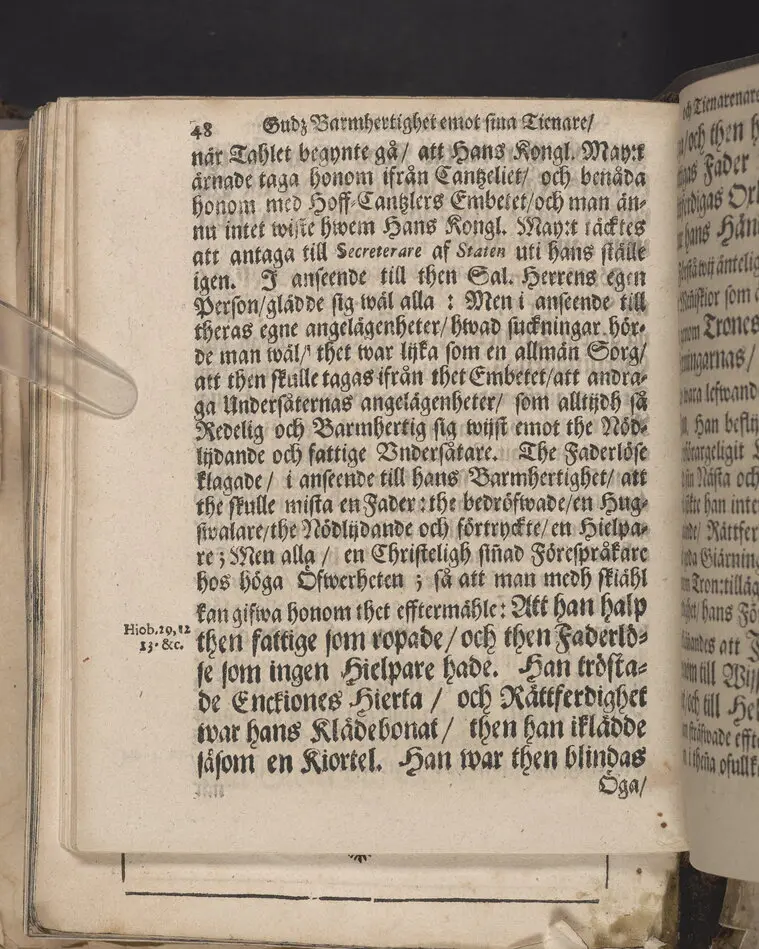 48 Gudz Barmhertighet emot sina Tienare/
när Tahlet begynte gå/ att Hans Kongl. May:t
ärnade taga honom ifrån Cantzeliet/ och benåda
honom med Hoff-Cantzlers Embetet/och man än-
nu intet wiste hwem Hans Kongl. May:t täcktes
att antaga till Secreterare af Staten uti hans ställe
igen. I anseende till then Sal. Herrens egen
Person/glädde sig wäl alla : Men i anseende till
theras egne angelägenheter/ hwad suckningar hör-
de man wäl/ thet war lijka som en allmän Sorg/
att then skulle tagas ifrån thet Embetet/att andra-
ga Undersåternas angelägenheter/ som alltijdh så
Redelig och Barmhertig sig wijst emot the Nöd-
lijdande och fattige Vndersåtare. The Faderlöse
klagade/ i anseende till hans Barmhertighet/ att
the skulle mista en Fader : the bedröfwade/en Hug-
swalare/the Nödlijdande och förtryckte/en Hielpa-
re ; Men alla / en Christeligh siñad Förespråkare
hos höga Öfwerheten ; så att man medh skiähl
kan gifwa honom thet efftermähle: Att han halp
Hiob.29,12
13.&c.
then fattige som ropade/ och then Faderlö-
se som ingen Hielpare hade. Han trösta-
de Enckiones Hierta / och Rättferdighet
war hans Klädebonat/ then han iklädde
såsom en Kiortel. Han war then blindas
Öga/
och then
Fader
hans
Trones
ningarnas/
Han
Nästa och